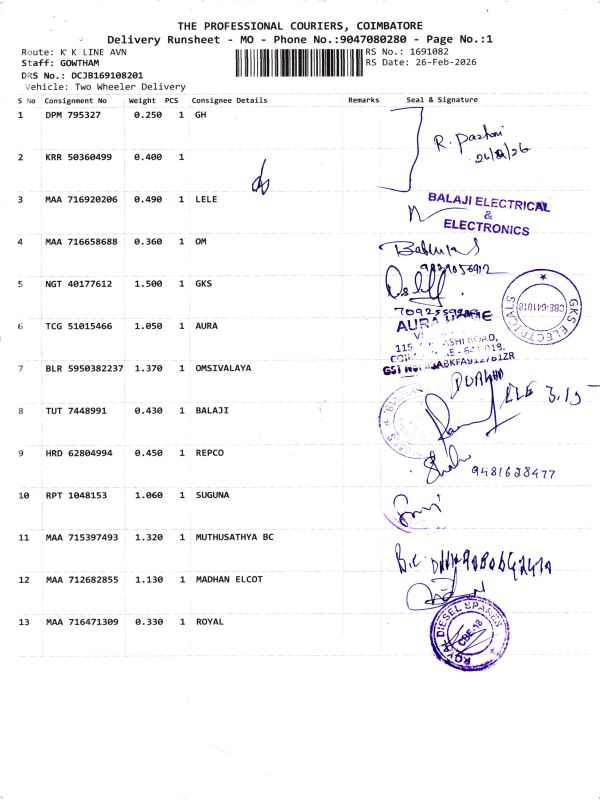 THE PROFESSIONAL COURIERS, COIMBATORE
Delivery Runsheet - MO - Phone No.:9047080280 - Page No.:1
Route: K K LINE AVN RS No.: 1691082
Staff: GOWTHAM RS Date: 26-Feb-2026
DRS No.: DCJB169108201
Vehicle: Two Wheeler Delivery
S No Consignment No Weight PCS Consignee Details Remarks Seal & Signature
1 DPM 795327 0.250 1 GH
R.
2 KRR 50360499 0.400 1
3 MAA 716920206 0.490 1 LELE
BALAJI ELECTRICAL
&
ELECTRONICS
4 MAA 716658688 0.360 1 OM
5 NGT 40177612 1.500 1 GKS
GKS ELECTRICALS
CBE-641018
6 TCG 51015466 1.050 1 AURA
AURA
115, ASHI ROAD,
7 BLR 5950382237 1.370 1 OMSIVALAYA
8 TUT 7448991 0.430 1 BALAJI
9 HRD 62804994 0.450 1 REPCO
9481628477
10 RPT 1048153 1.060 1 SUGUNA
11 MAA 715397493 1.320 1 MUTHUSATHYA BC
B.C.
12 MAA 712682855 1.130 1 MADHAN ELCOT
13 MAA 716471309 0.330 1 ROYAL
ROYAL DIESEL SPARES
CBE-18